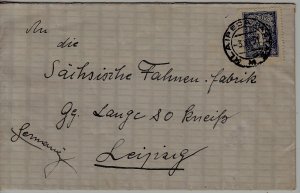 An
die
Sächsische Fahnen-fabrik
Gg. Lange
Germany
Leipzig
KLAIPĖDA